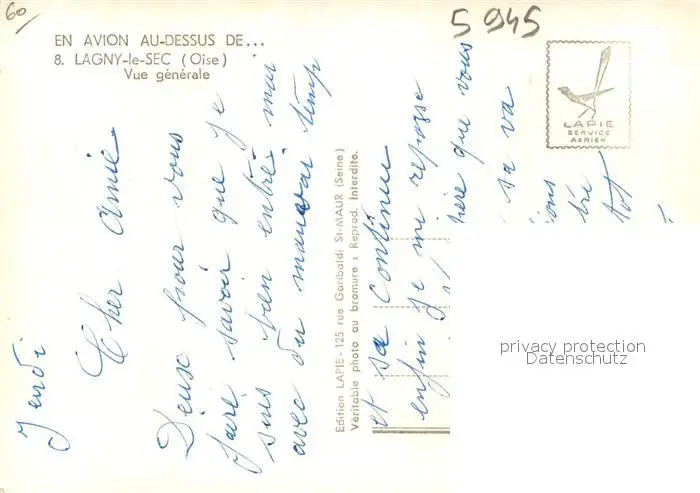 60
5945
EN AVION AU-DESSUS DE...
8. LAGNY-le-SEC (Oise)
Vue générale
LAPIE
SERVICE
AERIEN
Edition LAPIE - 125 rue Garibaldi St-MAUR (Seine)
Véritable photo au bromure : Reprod. Interdite.
Jendi
Cher Amie
Deux pour vous
faire savoir que je
suis bien entré mai
avec du mauvai temp
et sa continue
enfin je mi repose
que vous
sa va
tot
privacy protection
Datenschutz